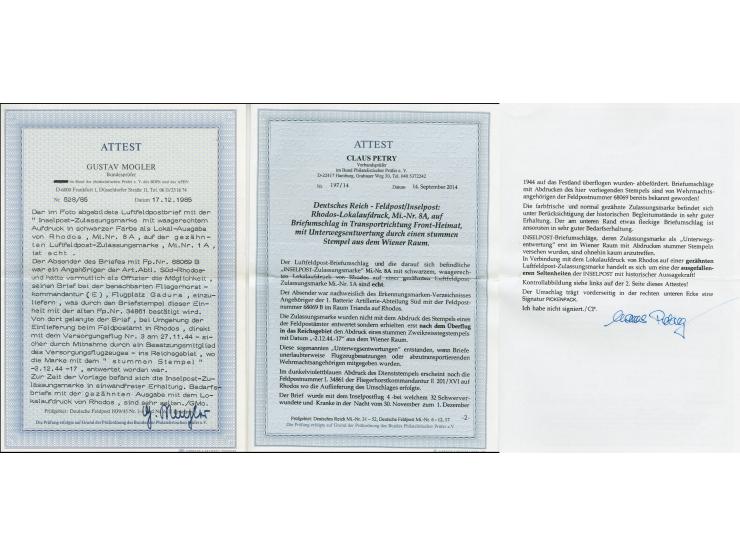 ATTEST
GUSTAV MOGLER
Bundesprüfer
im Bund der Philatelistischen Prüfer e. V. des BDPh und der APHV
D-6000 Frankfurt 1, Düsseldorfer Straße 11, Tel. 06 11/23 16 74
Nr 528/85 Datum 17.12.1985
Der im Foto abgebildete Luftfeldpostbrief mit der
" Inselpost-Zulassungsmarke mit waagerechtem
Aufdruck in schwarzer Farbe als Lokal-Ausgabe
von Rhodos , Mi.Nr. 8 A , auf der gezähn-
ten Luftfeldpost-Zulassungsmarke , Mi.Nr. 1 A ,
ist echt .
Der Absender des Briefes mit Fp.Nr. 68069 B
war ein Angehöriger der Art.Abtl. Süd-Rhodos-
und hatte vermutlich als Offizier die Möglichkeit ,
seinen Brief bei der benachbarten Fliegerhorst -
kommandantur ( E ) , Flugplatz Gadura , einzu-
liefern , was durch den Briefstempel dieser Ein-
heit mit der alten Fp.Nr. 34861 bestätigt wird.
Von dort gelangte der Brief , bei Umgehung der
Einlieferung beim Feldpostamt in Rhodos , direkt
mit dem Versorgungsflug Nr. 3 am 27.11.44 - si-
cher durch Mitnahme durch ein Besatzungsmitglied
des Versorgungsflugzeuges - ins Reichsgebiet , wo
die Marke mit dem " stummen Stempel "
-2.12.44 -17 , entwertet wurde .
Zur Zeit der Vorlage befand sich die Inselpost-Zu-
lassungsmarke in einwandfreier Erhaltung. Bedarfs-
briefe mit der gezähnten Ausgabe mit dem Lo-
kalaufdruck von Rhodos , sind sehr selten./GMo.
Prüfgebiet: Deutsche Feldpost 1939/45 Nr. 1-
Die Prüfung erfolgte auf Grund der Prüfordnung des Bundes Philatelistischer Prüfer e.V.
ATTEST
CLAUS PETRY
Verbandsprüfer
im Bund Philatelistischer Prüfer e. V.
D-22417 Hamburg, Grabauer Weg 30, Tel. 040 5372242
Nr. 197/14 Datum 14. September 2014
Deutsches Reich - Feldpost/Inselpost:
Rhodos-Lokalaufdruck, Mi.-Nr. 8A, auf
Briefumschlag in Transportrichtung Front-Heimat,
mit Unterwegsentwertung durch einen stummen
Stempel aus dem Wiener Raum.
Der Luftfeldpost-Briefumschlag und die darauf sich befindliche
„INSELPOST-Zulassungsmarke" Mi.-Nr. 8A mit schwarzem, waagerech-
tem Lokalaufdruck von Rhodos auf einer gezähnten Luftfeldpost-
Zulassungsmarke Mi.-Nr. 1A sind echt.
Der Absender war nachweislich des Erkennungsmarken-Verzeichnisses
Angehöriger der 1. Batterie Artillerie-Abteilung Süd mit der Feldpost-
nummer 68069 B im Raum Trianda auf Rhodos.
Die Zulassungsmarke wurden nicht mit dem Abdruck des Stempels eines
der Feldpostämter entwertet sondern erhielten erst nach dem Überflug
in das Reichsgebiet den Abdruck eines stummen Zweikreissteg­stempels
mit Datum „-2.12.44.-17" aus dem Wiener Raum.
Diese sogenannten „Unterwegsentwertungen" entstanden, wenn Briefe
unerlaubterweise Flugzeugbesatzungen oder abzutransportierenden
Wehrmachtsangehörigen mitgegeben wurden.
Im dunkelviolettblauen Abdruck des Dienststempels erscheint noch die
Feldpostnummer L 34861 der Fliegerhorstkommandantur E 201/XVI auf
Rhodos wo die Auflieferung des Umschlages erfolgte.
Der Brief wurde mit dem Inselpostflug 4 -bei welchem 32 Schwerver-
wundete und Kranke in der Nacht vom 30. November zum 1. Dezember
-2-
Prüfgebiet: Deutsches Reich Mi.-Nr. 31 – 52, Deutsche Feldpost Mi.-Nr. 6 - 12, 17
Die Prüfung erfolgte auf Grund der Prüfordnung des Bundes Philatelistischer Prüfer e.V.
1944 auf das Festland überflogen wurden- abbefördert. Briefumschläge
mit Abdrucken des hier vorliegenden Stempels sind von Wehrmachts-
angehörigen der Feldpostnummer 68069 bereits bekannt geworden!
Die farbfrische und normal gezähnte Zulassungsmarke befindet sich
unter Berücksichtigung der historischen Begleitumstände in sehr guter
Erhaltung. Der am unteren Rand etwas fleckige Briefumschlag ist
ansonsten in sehr guter Bedarfserhaltung.
INSELPOST-Briefumschläge, deren Zulassungsmarke als „Unterwegs-
entwertung" erst in Wien mit Abdrucken des stummen Stempels
versehen wurden, sind ohnehin kaum anzutreffen.
In Verbindung mit dem Lokalaufdruck von Rhodos auf einer gezähnten
Luftfeldpost-Zulassungsmarke handelt es sich um eine der ausgefallen-
eren Seltenheiten der INSELPOST mit historischer Aussagekraft!
Kontrollabbildung siehe links auf der 2. Seite dieses Attestes!
Der Umschlag trägt vorderseitig in der rechten unteren Ecke eine
Signatur PICKENPACK.
Ich habe nicht signiert./CP.
Claus Petry